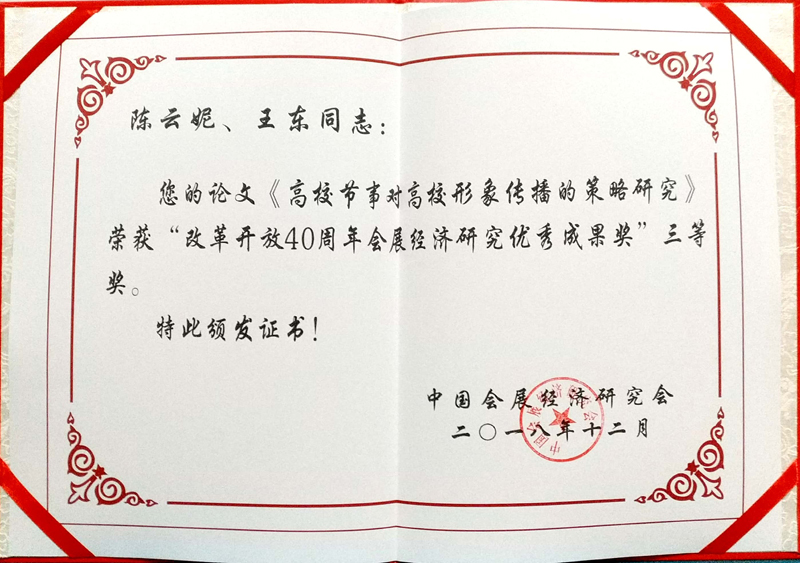 陈云妮、王东同志：
您的论文《高校节事对高校形象传播的策略研究》
荣获“改革开放40周年会展经济研究优秀成果奖”三等
奖。
特此颁发证书！
中国会展经济研究会
二〇一八年十二月
中国会展经济研究会